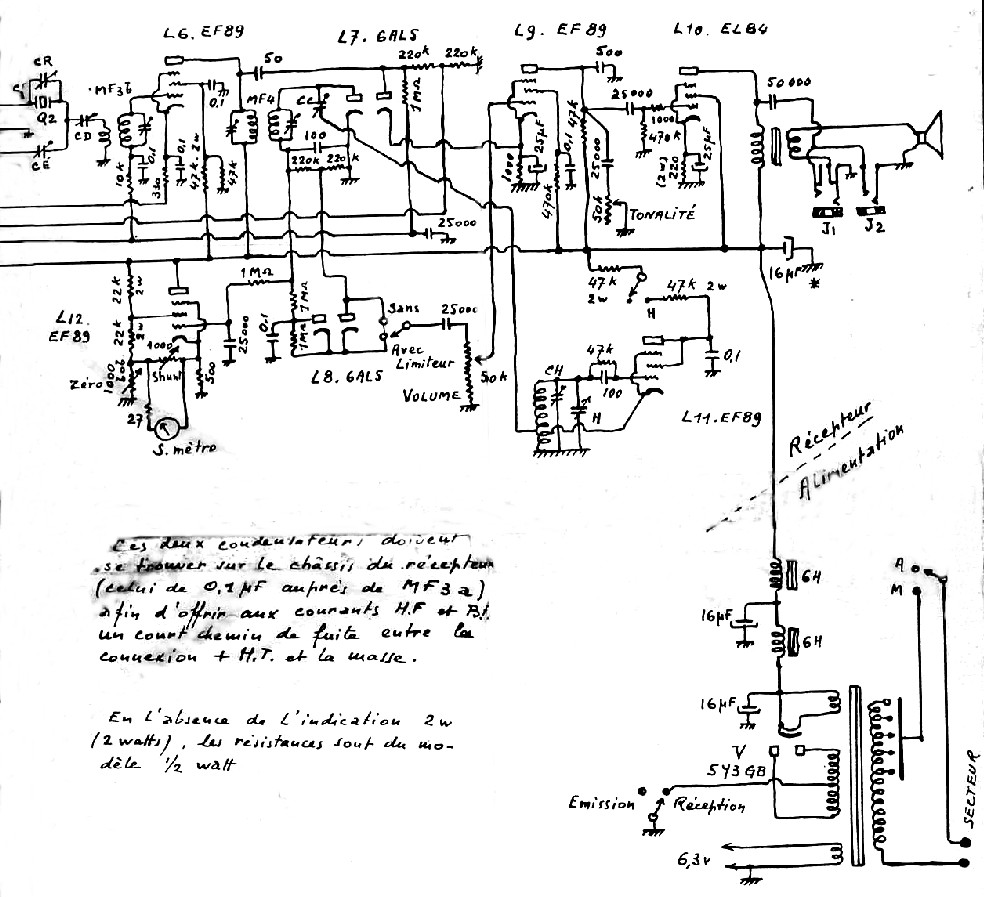 L6. EF89
L7. 6AL5
L9. EF89
L10. EL84
CR
Q2
CD
CE
MF3b
0,1
50
MF4
Cc
220k
220k
1MΩ
100
220k
220k
10k
0,1
330
0,1
47k 2w
47k
500
25000
47k
1000
470k
25µF
0,1
1000
470k
25000
50k
TONALITÉ
220
(2w)
25µF
50 000
J1
J2
16µF
*
25000
22k
2w
22k
L12.
EF89
1000
Shunt
Zéro
1000
bob
500
27
S.mètre
1MΩ
25000
0,1
1MΩ
1MΩ
L8. 6AL5
Sans
Avec
Limiteur
25000
50k
VOLUME
47k
2w
H
47k 2w
0,1
CH
47k
100
H
L11. EF89
Récepteur
Alimentation
Ces deux condensateurs doivent
se trouver sur le châssis du récepteur
(celui de 0,1 µF auprès de MF3a)
afin d'offrir aux courants H.F et B.F.
un court chemin de fuite entre la
connexion + H.T. et la masse.
En l'absence de l'indication 2w
(2 watts), les résistances sont du mo-
dèle 1/2 watt
6H
16µF
6H
16µF
V
5Y3GB
Emission
Réception
6,3v
A
M
SECTEUR